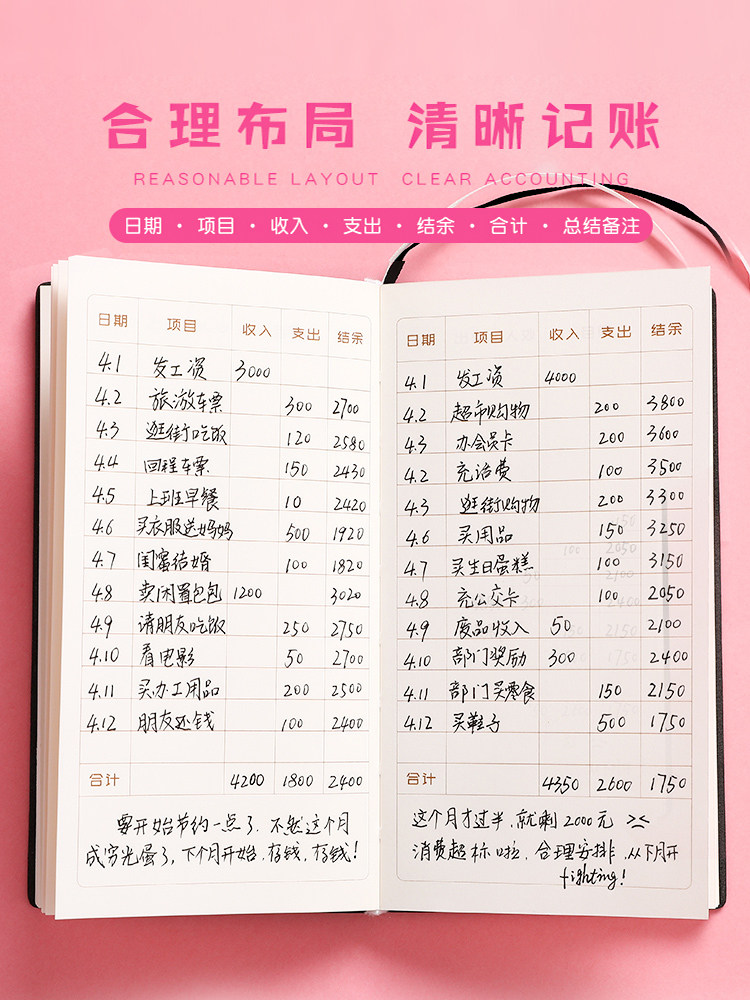 合理布局 清晰记账
REASONABLE LAYOUT CLEAR ACCOUNTING
日期 · 项目 · 收入 · 支出 · 结余 · 合计 · 总结备注
日期 项目 收入 支出 结余
4.1 发工资 3000
4.2 旅游车票 300 2700
4.3 逛街吃饭 120 2580
4.4 回程车票 150 2430
4.5 上班早餐 10 2420
4.6 买衣服送妈妈 500 1920
4.7 闺蜜结婚 100 1820
4.8 卖闲置包包 1200 3020
4.9 请朋友吃饭 250 2750
4.10 看电影 50 2700
4.11 买办工用品 200 2500
4.12 朋友还钱 100 2400
合计 4200 1800 2400
要开始节约一点了、不然这个月
成穷光蛋了,下个月开始.存钱,存钱!
日期 项目 收入 支出 结余
4.1 发工资 4000
4.2 超市购物 200 3800
4.3 办会员卡 200 3600
4.2 充话费 100 3500
4.3 逛街购物 200 3300
4.6 买用品 150 3250
4.7 买生日蛋糕 100 3150
4.8 充公交卡 100 2050
4.9 废品收入 50 2100
4.10 部门奖励 300 2400
4.11 部门买零食 150 2150
4.12 买鞋子 500 1750
合计 4350 2600 1750
这个月才过半.就剩2000元 ><
消费超标啦、合理安排.从下月开
fighting!